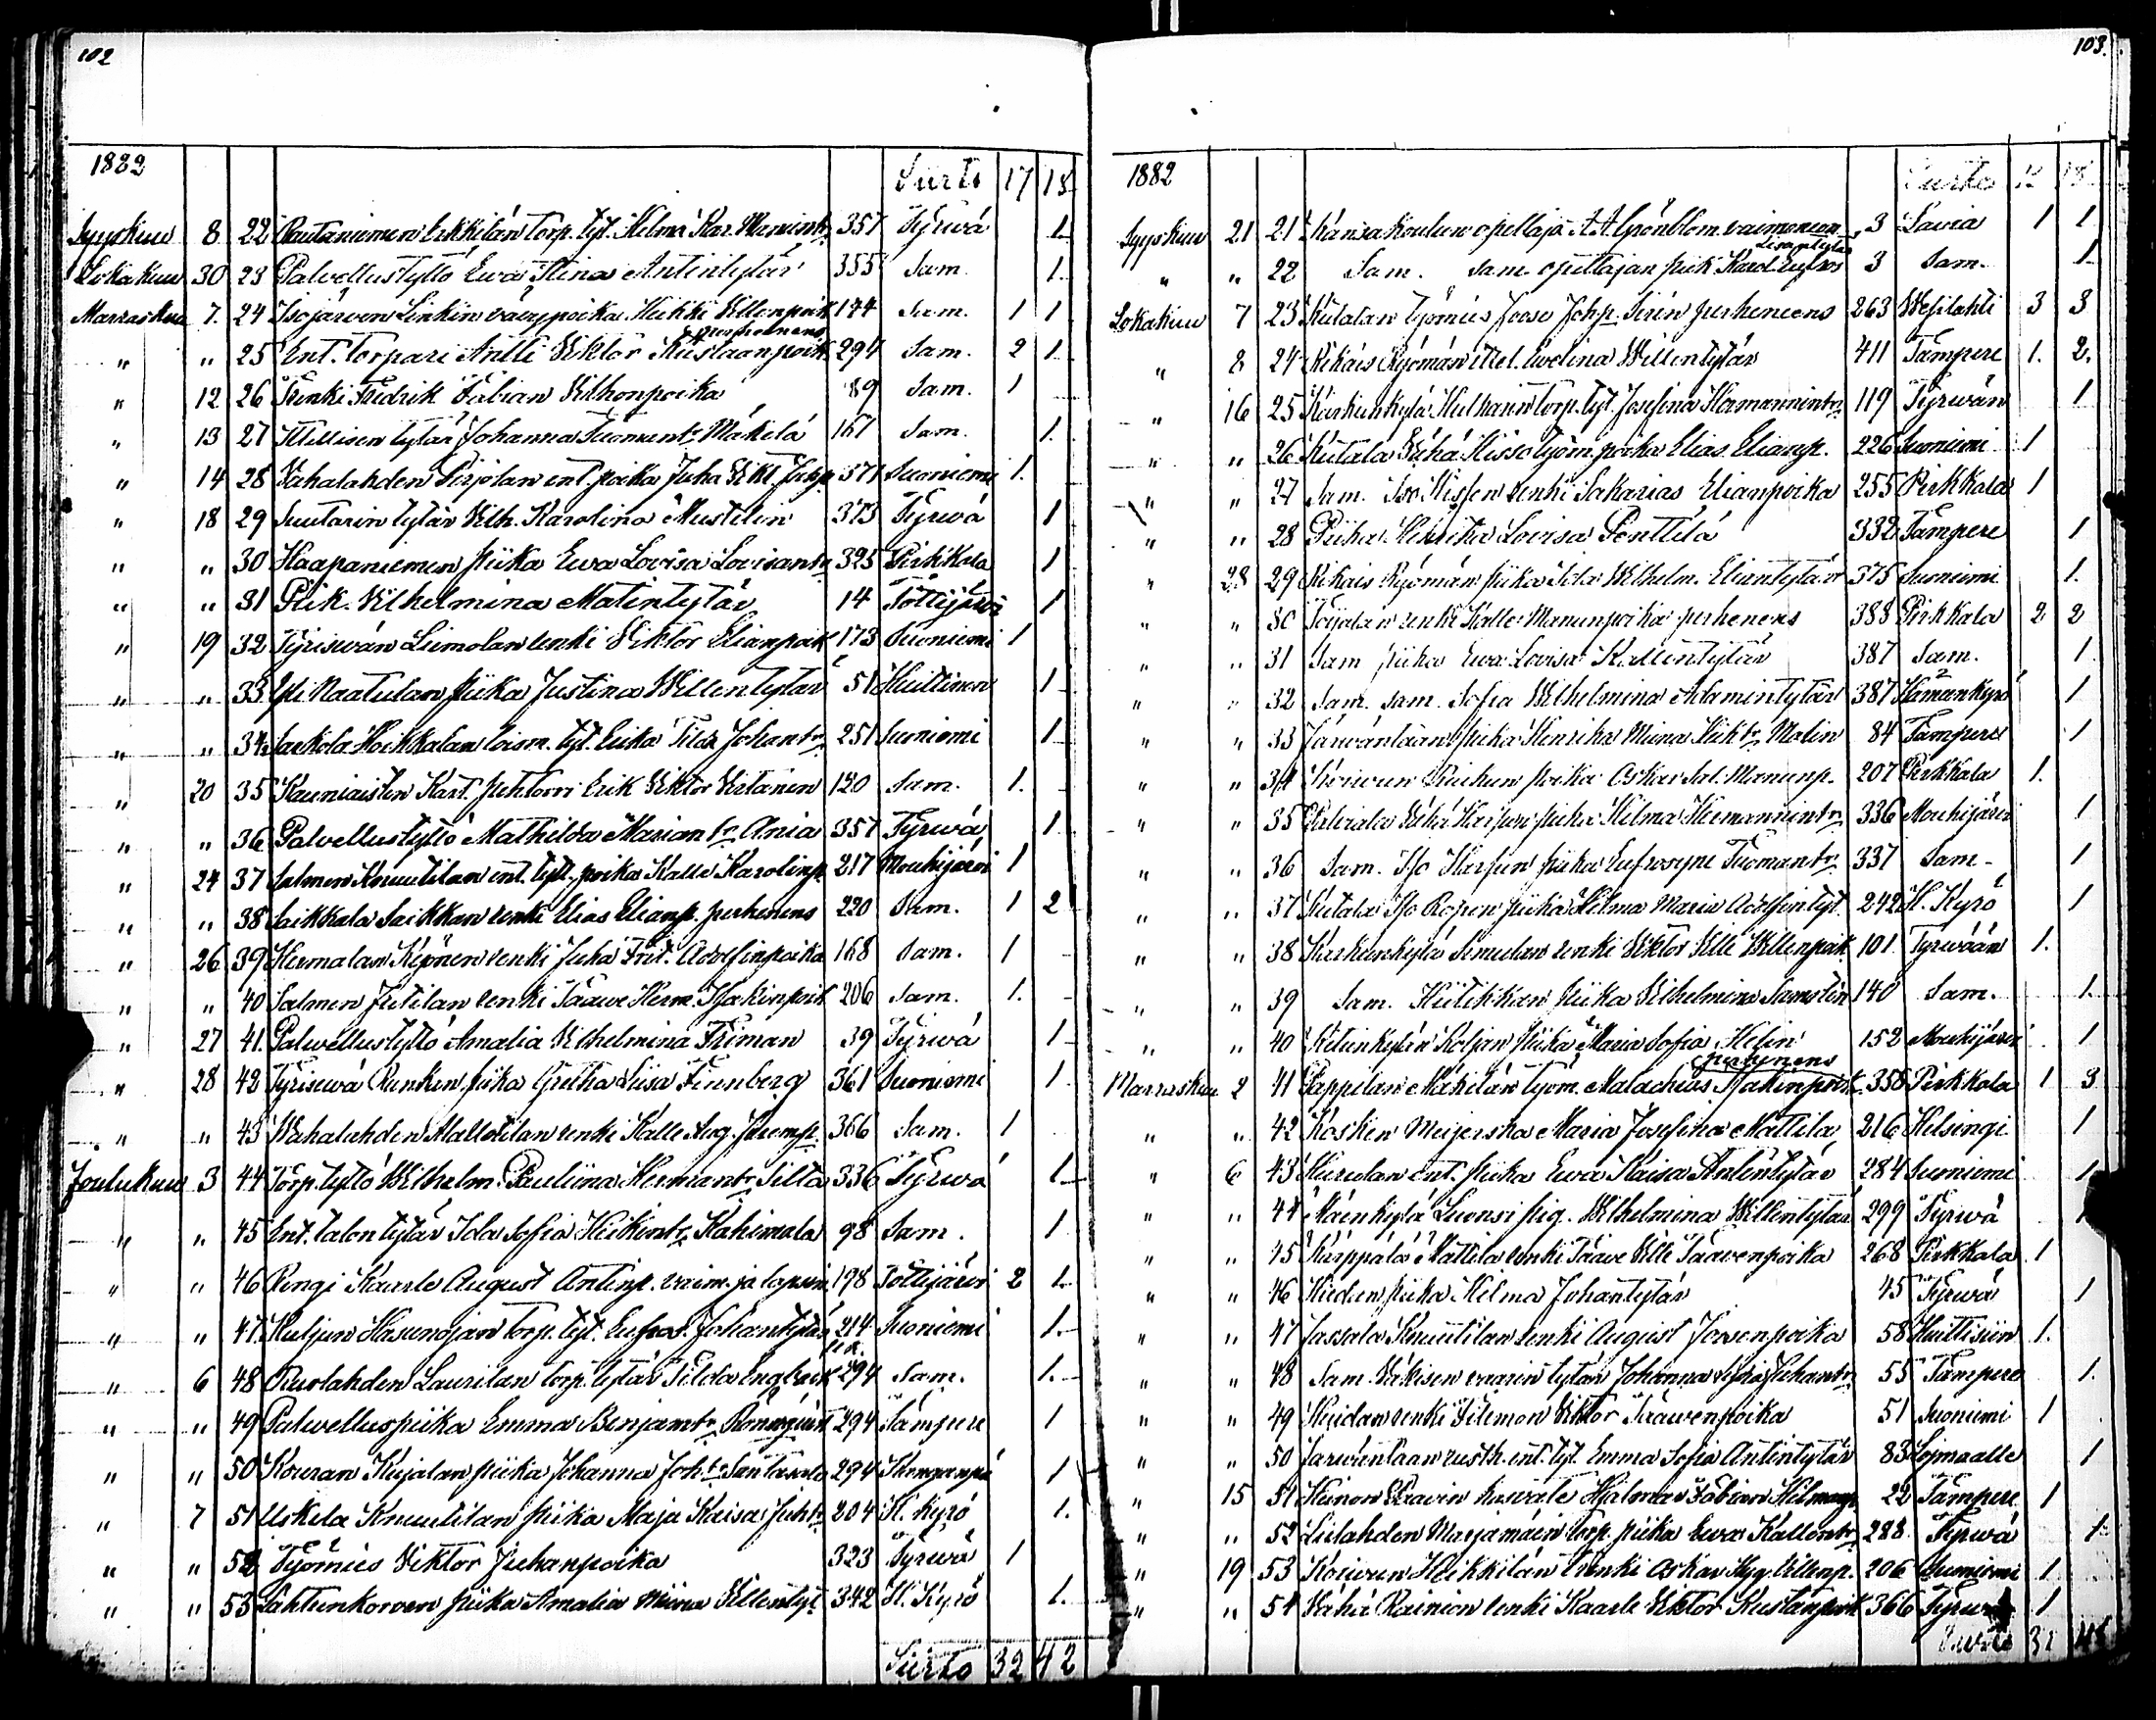 102
1882 Siirto 17 18
Syyskuu 8 22 Rautaniemen Erkkilän torp. tyt. Helma Kar. Manintr 357 Tyrwä 1
Lokakuu 30 23 Palvellustyttö Ewa Stina Antintytär 355 Sam. 1
Marraskuu 7. 24 Isojärven Linkin vävypoika Heikki Willenpoik 174 Sam. 1 1
perheinens
" " 25 Ent. torpari Antti Wiktor Kustaanpoik 294 Sam. 2 1
" 12 26 Renki Fredrik Fabian Wilhonpoika 89 Sam. 1
" 13 27 Itellisen tytär Johanna Tuomentr Mäkelä 167 Sam. 1
" 14 28 Vahalahden Pirjolan ent. poika Juha Wikt. Johp 371 Suoniemi 1.
" 18 29 Suutarin tytär Wilh. Karolina Mustelin 373 Tyrwä 1
" " 30 Haapaniemen piika Ewa Lovisa Lovisantr 325 Pirkkala 1
" " 31 Piik. Wilhelmina Matintytär 14 Tottijärvi 1
" 19 32 Tyrisevän Liimolan renki Wiktor Elianpoik 173 Suoniemi 1
" " 33 Yli Naatulan piika Justina Willentytär 51 Huittinen 1
" " 34 Sarkola Hoikkalan loism. tyt. Erika Tilda Johantr 251 Suoniemi 1
" 20 35 Kauniaisten Kart. puhtori Erik Wiktor Virtanen 120 Sam. 1.
" " 36 Palvellustyttö Mathilda Mariantr Ania 357 Tyrwä 1
" 24 37 Salmen Knuutilan ent. tyt. poika Kalle Karolinp. 217 Mouhijärvi 1
" " 38 Saikkala Saikkan renki Elias Elianp. perheinens 220 Sam. 1 2
" 26 39 Hermalan Keponen renki Juha Frit. Adolfinpoika 168 Sam. 1
" " 40 Salmen Jutilan renki Taawe Herm. Isakinpoik 206 Sam. 1.
" 27 41. Palvellustyttö Amalia Wilhelmina Friman 39 Tyrwä 1
" 28 42 Tyrisevä Runkun piika Gretha Liisa Finnberg 361 Suoniemi 1
" " 43 Wahalahden Mallotilan renki Kalle Aug. Jeremp. 366 Sam. 1
Joulukuu 3 44 Torp. tyttö Wilhelm. Pauliina Hermantr Silta 336 Tyrwä 1
" " 45 Ent. talon tytär Ida Sofia Heikintr Kahimala 98 Sam. 1
" " 46 Rengi Kaarle August Antinp. vaim. ja lapsin. 178 Tottijärvi 2 1
" " 47. Kuljun Hasunojan torp. tyt. Eufros. Johantytär 214 Suoniemi 1.
" 6 48 Ruolahden Laurilan torp. tytär Tilda Englbrik 294 Sam. 1.
" " 49 Palwelluspiika Emma Benjamtr 294 Tampere 1
" " 50 Kouran Kujalan piika Johanna Johtr Santasalo 294 1
" 7 51 Uskela Knuutilan piika Maja Kaisa Juhtr 204 H. Kyrö 1.
" " 52 Työmies Wiktor Juhanpoika 323 Tyrwä 1
" " 53 Lahtunkorven piika Amalia Miina Willentyt 342 H. Kyrö 1.
Siirto 32 42
103.
1882 Siirto 12 18
Syyskuu 21 21 Kansakoulun opettaja A. A. Grönblom vaimoneen 3 Lavia 1 1
Lisantytär
" " 22 Sam. sam. opettajan piik Karol. Eufros 3 Sam. 1
Lokakuu 7 23 Kutalan työmies Joose Johp. Sirén perheineens 263 Wesilahti 3 3
" 8 24 Kikäis Ryömän ittel. Ewelina Willentytär 411 Tampere 1. 2.
" 16 25 Karkunkylä Hulhain torp. tyt. Josefina Hermannintr 119 Tyrwään 1
" " 26 Kutala Wähä Hisso työm. poika Elias Elianp. 226 Suoniemi 1
" " 27 Sam. Iso Hissen renki Sakarias Elianpoika 255 Pirkkala 1
" " 28 Piika Henrika Lovisa Penttilä 332 Tampere 1
" 28 29 Kikäis Ryömän piika Ida Wilhelm. Eliantytär 375 Suoniemi 1.
" " 30 Toijalan renki Kalle Manunpoika perheneens 388 Pirkkala 2 2
" " 31 Sam piika Ewa Lovisa Kallentytär 387 Sam. 1
" " 32 Sam. sam. Sofia Wilhelmina Adamintytär 387 Hämeenkyrö 1
" " 33 Järventaan piika Henrika Miina Heiktr Malin 84 Tampere 1
" " 34 Korivun Ruuhun poika Oskar Sal. Manunp. 207 Pirkkala 1.
" " 35 Wähä Harjun piika Hilma Hermannintr 336 Mouhijärvi 1
" " 36 Sam. Iso Harjun piika Eufrosyne Tuomantr 337 Sam- 1
" " 37 Kutala Iso Ropen piika Hilma Maria Adolfintyt. 242 H. Kyrö 1
" " 38 Karkunkylä Simulan renki Wiktor Wille Willenpoik 101 Tyrwään 1.
" " 39 Sam. Kutikkan piika Wilhelmina Samstén 140 Sam. 1.
" " 40 Kulunkylän Koljan piika Maria Sofia Helin 152 Mouhijärvi 1
perheinens
Marraskuu 2 41 Lappilan Mäkilän työm. Malachias Isakinpoik 358 Pirkkala 1 3
" " 42 Kosken Meijerska Maria Josefina Mattila 216 Helsingi 1
" 6 43 Hiirolan ent. piika Ewa Kaisa Antintytär 284 Suoniemi 1
" " 44 Mäenkylä Luonsi pig. Wilhelmina Willentytär 299 Tyrwä
" " 45 Kärppälä Mattila renki Taawe Wille Taawenpoika 268 Pirkkala 1
" " 46 Hiedun piika Helma Johantytär 45 Tyrwä 1
" " 47 Sassala Knuutilan renki August Joosenpoika 58 Huittisiin 1.
" " 48 Sam. Wäkisen vaarin tytär Johanna Sofia Juhantr 55 Tampere 1.
" " 49 Heidan renki Filemon Wiktor Taawenpoika 51 Suoniemi 1
" " 50 Järventaan rusth. ent. tyt. Emma Sofia Antintytär 83 Loimaalle 1
" 15 51 Heinon Kravin kaswate Hjalmar Fabian Hilmanp. 22 Tampere 1
" " 52 Lielahden Marjamäen torp. piika Ewa Kallentr 288 Tyrwä 1
" 19 53 Korivun Heikkilän renki Oskar Hyg. Willenp. 206 Suoniemi 1
" " 54 Wähä Rainion renki Kaarle Wiktor Kustanpoik 366 Tyrwä 1
Siirto 31 48